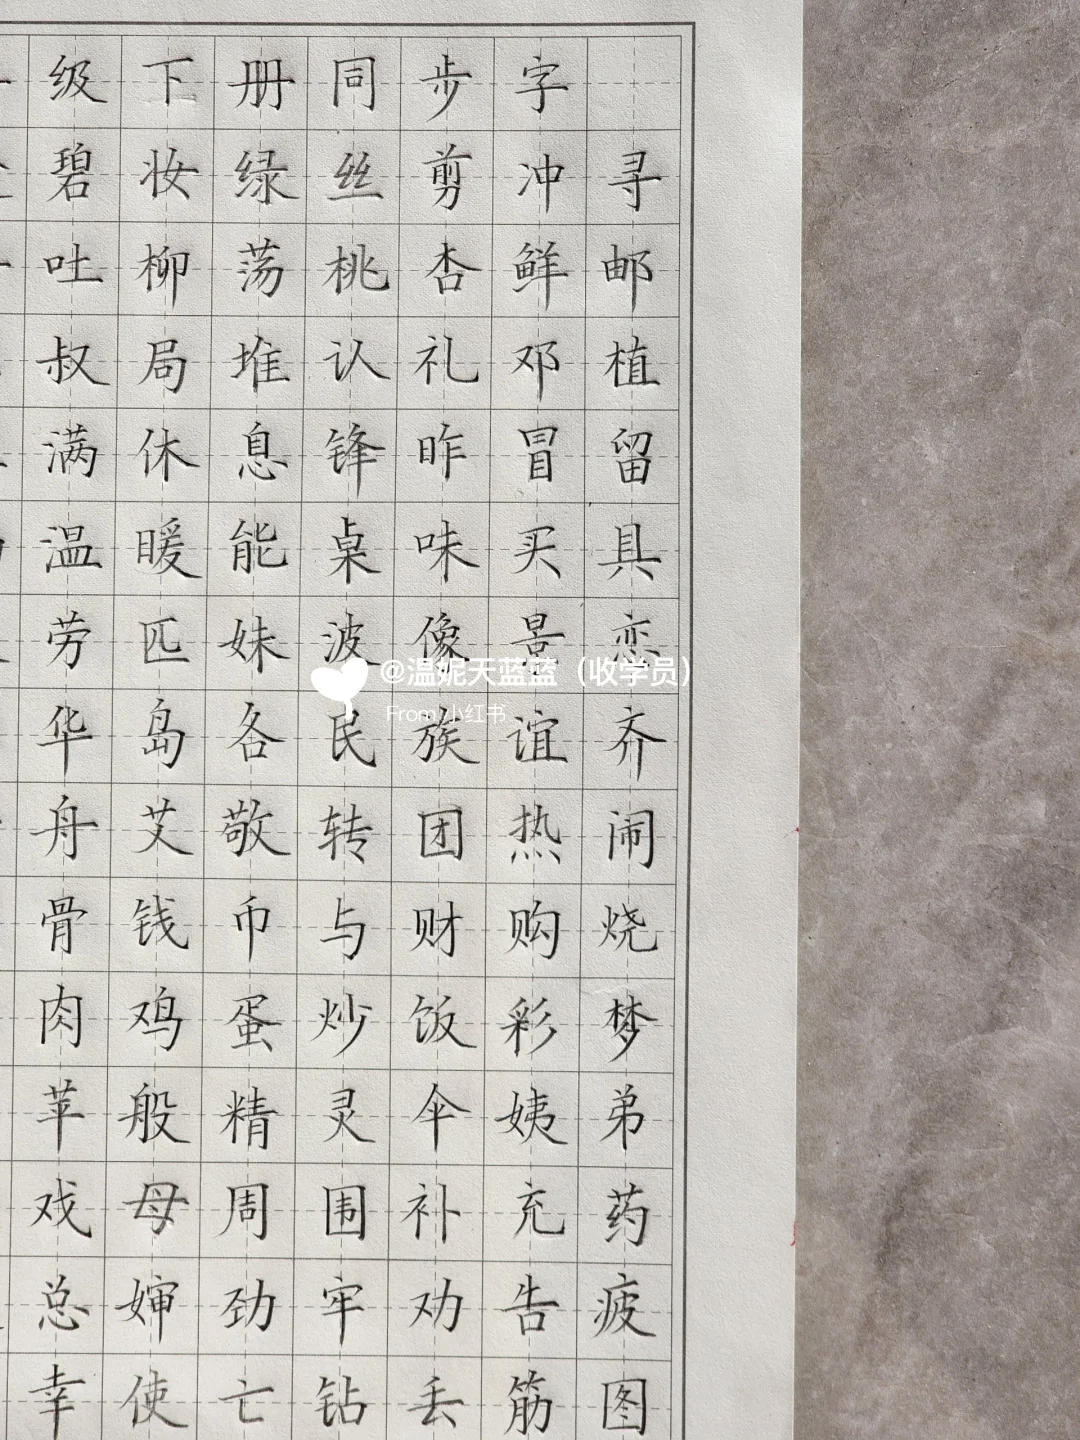 级下册同步字
碧妆绿丝剪冲寻
吐柳荡桃杏鲜邮
叔局堆认礼邓植
满休息锋昨冒留
温暖能桌味买具
劳匹妹波像景恋
@温妮天蓝蓝（收学员）
From 小红书
华岛各民族谊齐
舟艾敬转团热闹
骨钱币与财购烧
肉鸡蛋炒饭彩梦
苹般精灵伞姨弟
戏母周围补充药
总婶劲牢劝告疲
幸使亡钻丢筋图